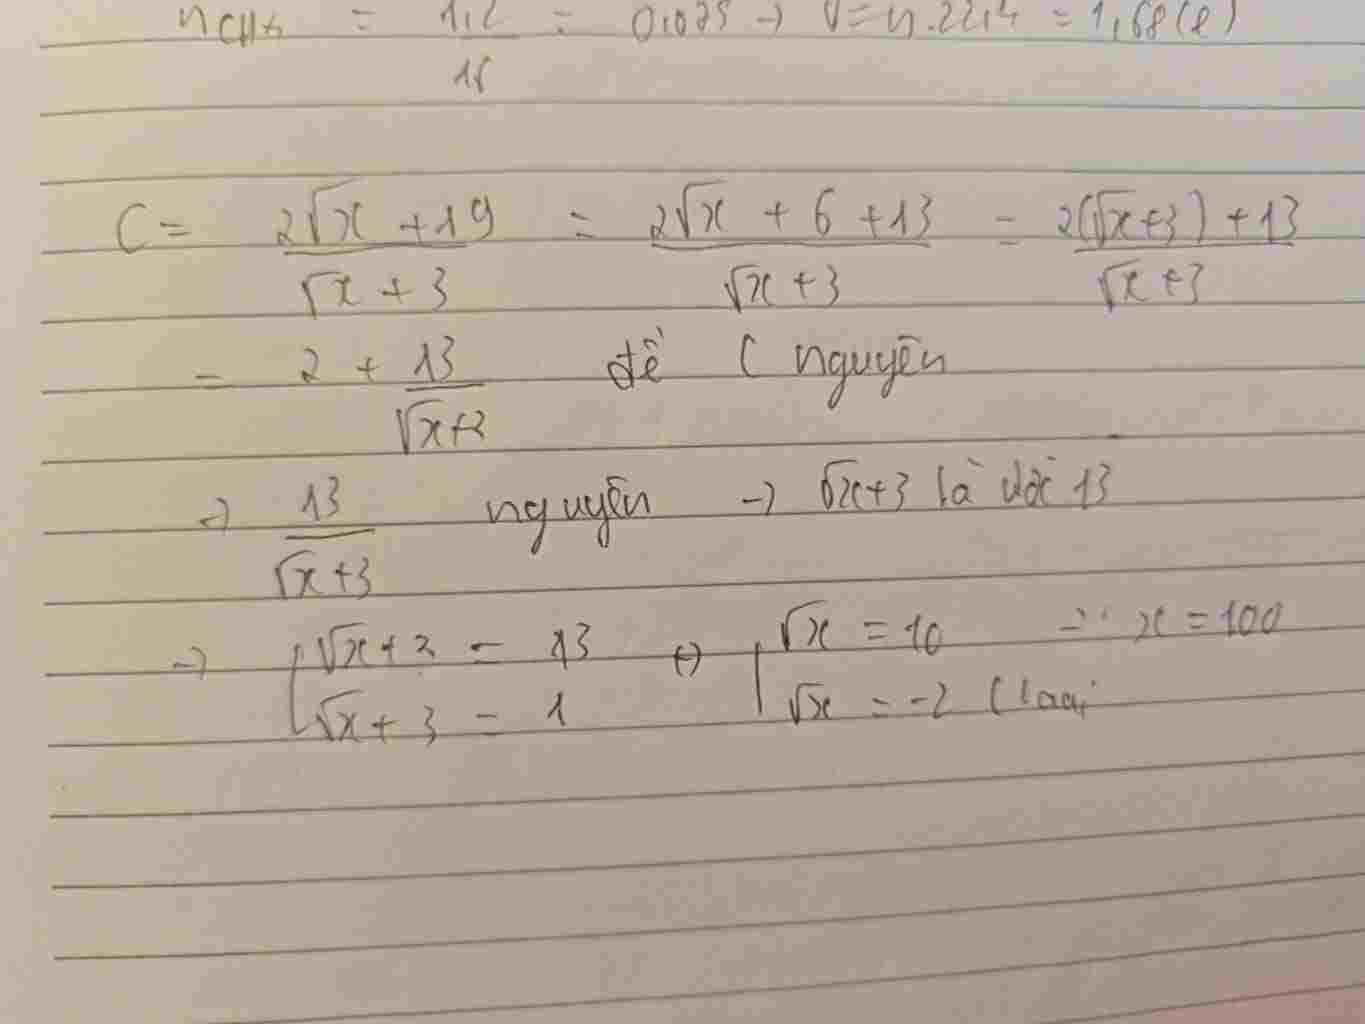 nCH₄ = 1,2/16 = 0,075 → V = n.22,4 = 1,68 (l)
C = (2√x + 19)/(√x + 3) = (2√x + 6 + 13)/(√x + 3) = (2(√x+3) + 13)/(√x+3)
= 2 + 13/(√x+3) để C nguyên
→ 13/(√x+3) nguyên → √x+3 là ước 13
→ [√x+3 = 13 ↔ [√x = 10 → x = 100
√x+3 = 1 √x = -2 (loại